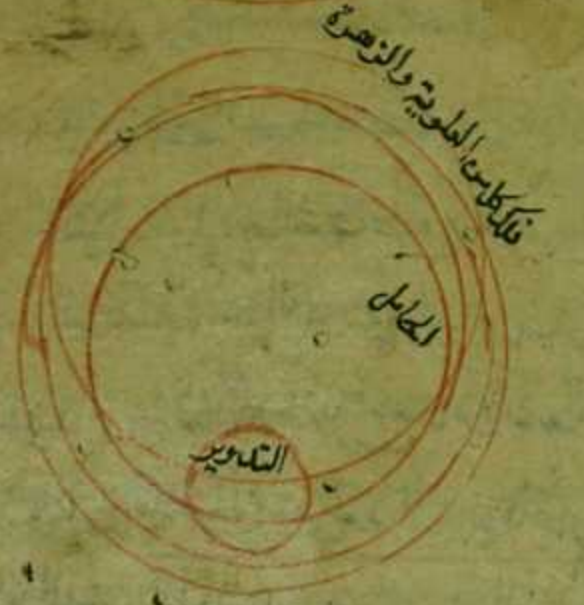 فلك كل من العلوية والزهرة
الحامل
التدوير